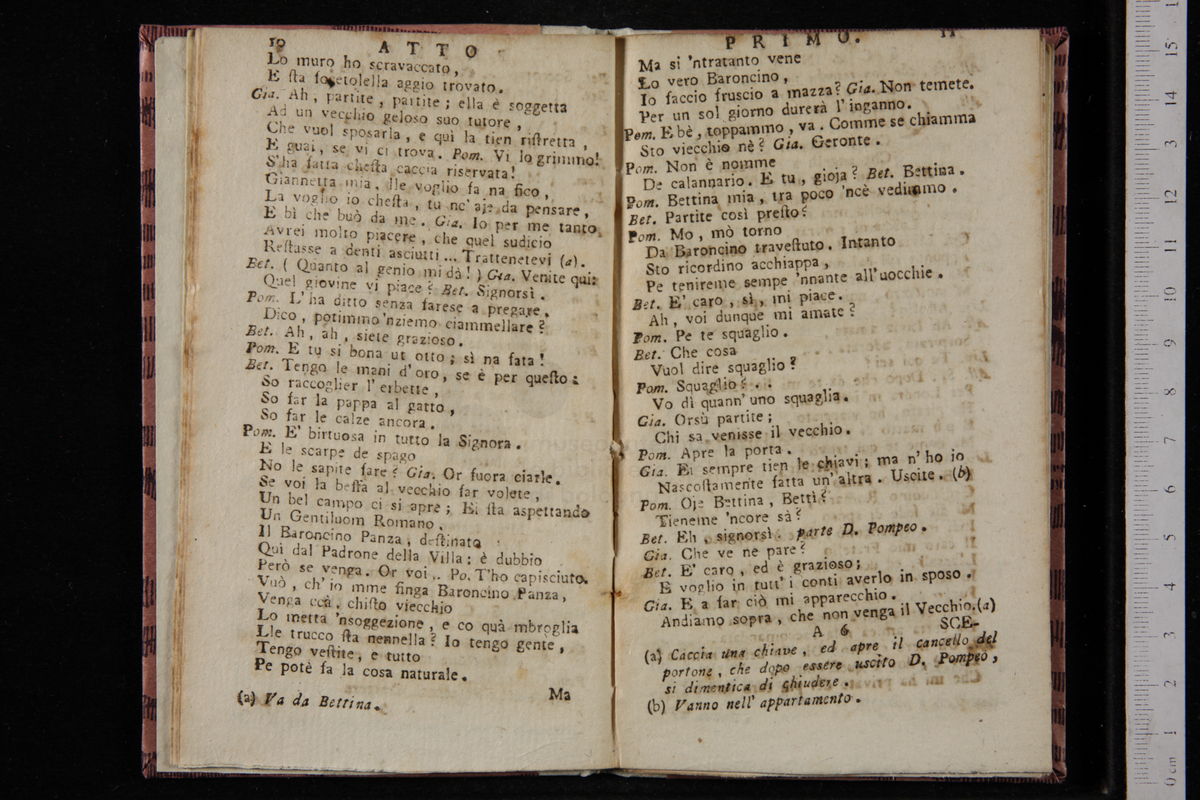 10 ATTO
Lo muro ho scravaccato,
E sta fosetolella aggio trovato.
Gia. Ah, partite, partite; ella è soggetta
Ad un vecchio geloso suo tutore,
Che vuol sposarla, e quì la tien ristretta,
E guai, se vi ci trova. Pom. Vi lo grimmo!
S'ha fatta chesta caccia riservata!
Giannetta mia, lle voglio fa na fico,
La voglio io chesta, tu nc'aje da pensare,
E bì che buò da me. Gia. Io per me tanto
Avrei molto piacere, che quel sudicio
Restasse a denti asciutti... Trattenetevi (a).
Bet. (Quanto al genio mi dà!) Gia. Venite quì:
Quel giovine vi piace? Bet. Signorsì.
Pom. L'ha ditto senza farese a pregare.
Dico, potimmo'nziemo ciammellare?
Bet. Ah, ah, siete grazioso.
Pom. E tu si bona ut otto; sì na fata!
Bet. Tengo le mani d'oro, se è per questo:
So raccoglier l'erbette,
So far la pappa al gatto,
So far le calze ancora.
Pom. E' birtuosa in tutto la Signora.
E le scarpe de spago
No le sapite fare? Gia. Or fuora ciarle.
Se voi la beffa al vecchio far volete,
Un bel campo ci si apre; Ei sta aspettando
Un Gentiluom Romano,
Il Baroncino Panza, destinato
Quì dal Padrone della Villa: è dubbio
Però se venga. Or voi.. Po. T'ho capisciuto.
Vuò, ch'io mme finga Baroncino Panza,
Venga ccà, chisto viecchio
Lo metta 'nsoggezione, e co quà mbroglia
Lle trucco sta nennella? Io tengo gente,
Tengo vestite, e tutto
Pe potè fa la cosa naturale.
Ma
(a) Va da Bettina.
PRIMO. 11
Ma si 'ntratanto vene
Lo vero Baroncino,
Io faccio fruscio a mazza? Gia. Non temete.
Per un sol giorno durerà l'inganno.
Pom. E bè, toppammo, va. Comme se chiamma
Sto viecchio nè? Gia. Geronte.
Pom. Non è nomme
De calannario. E tu, gioja? Bet. Bettina.
Pom. Bettina mia, tra poco 'ncè vedimmo.
Bet. Partite così presto?
Pom. Mo, mò torno
Da Baroncino travestuto. Intanto
Sto ricordino acchiappa,
Pe tenireme sempe 'nnante all'uocchie.
Bet. E' caro, sì, mi piace.
Ah, voi dunque mi amate?
Pom. Pe te squaglio.
Bet. Che cosa
Vuol dire squaglio?
Pom. Squaglio?..
Vo dì quann'uno squaglia.
Gia. Orsù partite;
Chi sa venisse il vecchio.
Pom. Apre la porta.
Gia. Ei sempre tien le chiavi; ma n'ho io
Nascostamente fatta un'altra. Uscite. (b)
Pom. Oje Bettina, Bettì?
Tieneme 'ncore sà?
Bet. Eh, signorsì. parte D. Pompeo.
Gia. Che ve ne pare?
Bet. E' caro, ed è grazioso;
E voglio in tutt'i conti averlo in sposo.
Gia. E a far ciò mi apparecchio.
Andiamo sopra, che non venga il Vecchio.(a)
A 6 SCE-
(a) Caccia una chiave, ed apre il cancello del
portone, che dopo essere uscito D. Pompeo,
si dimentica di chiudere.
(b) Vanno nell'appartamento.